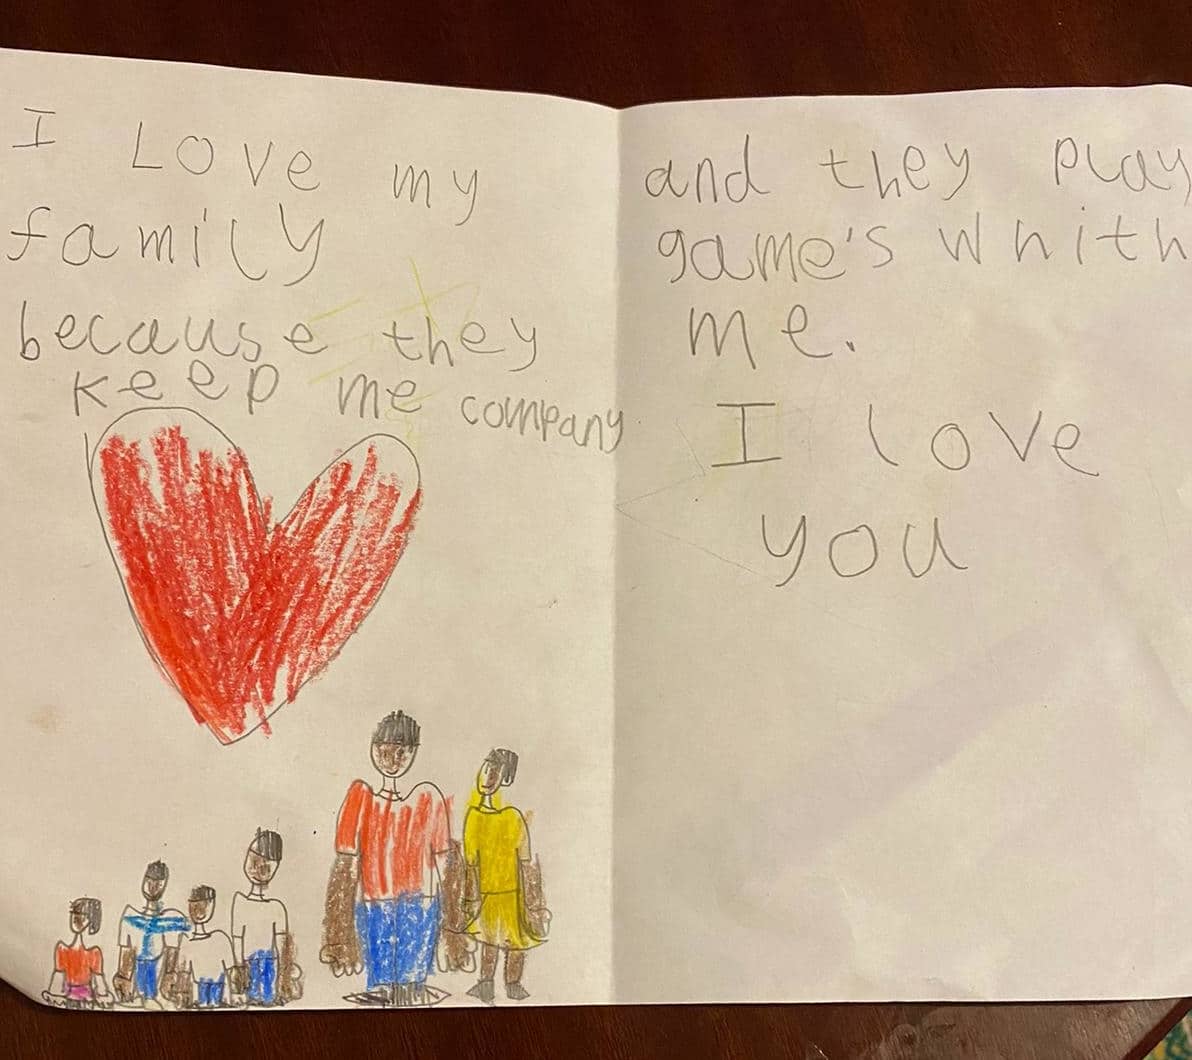 I Love my
family
because they
keep me company
and they play
game's whith
me.
I love
you